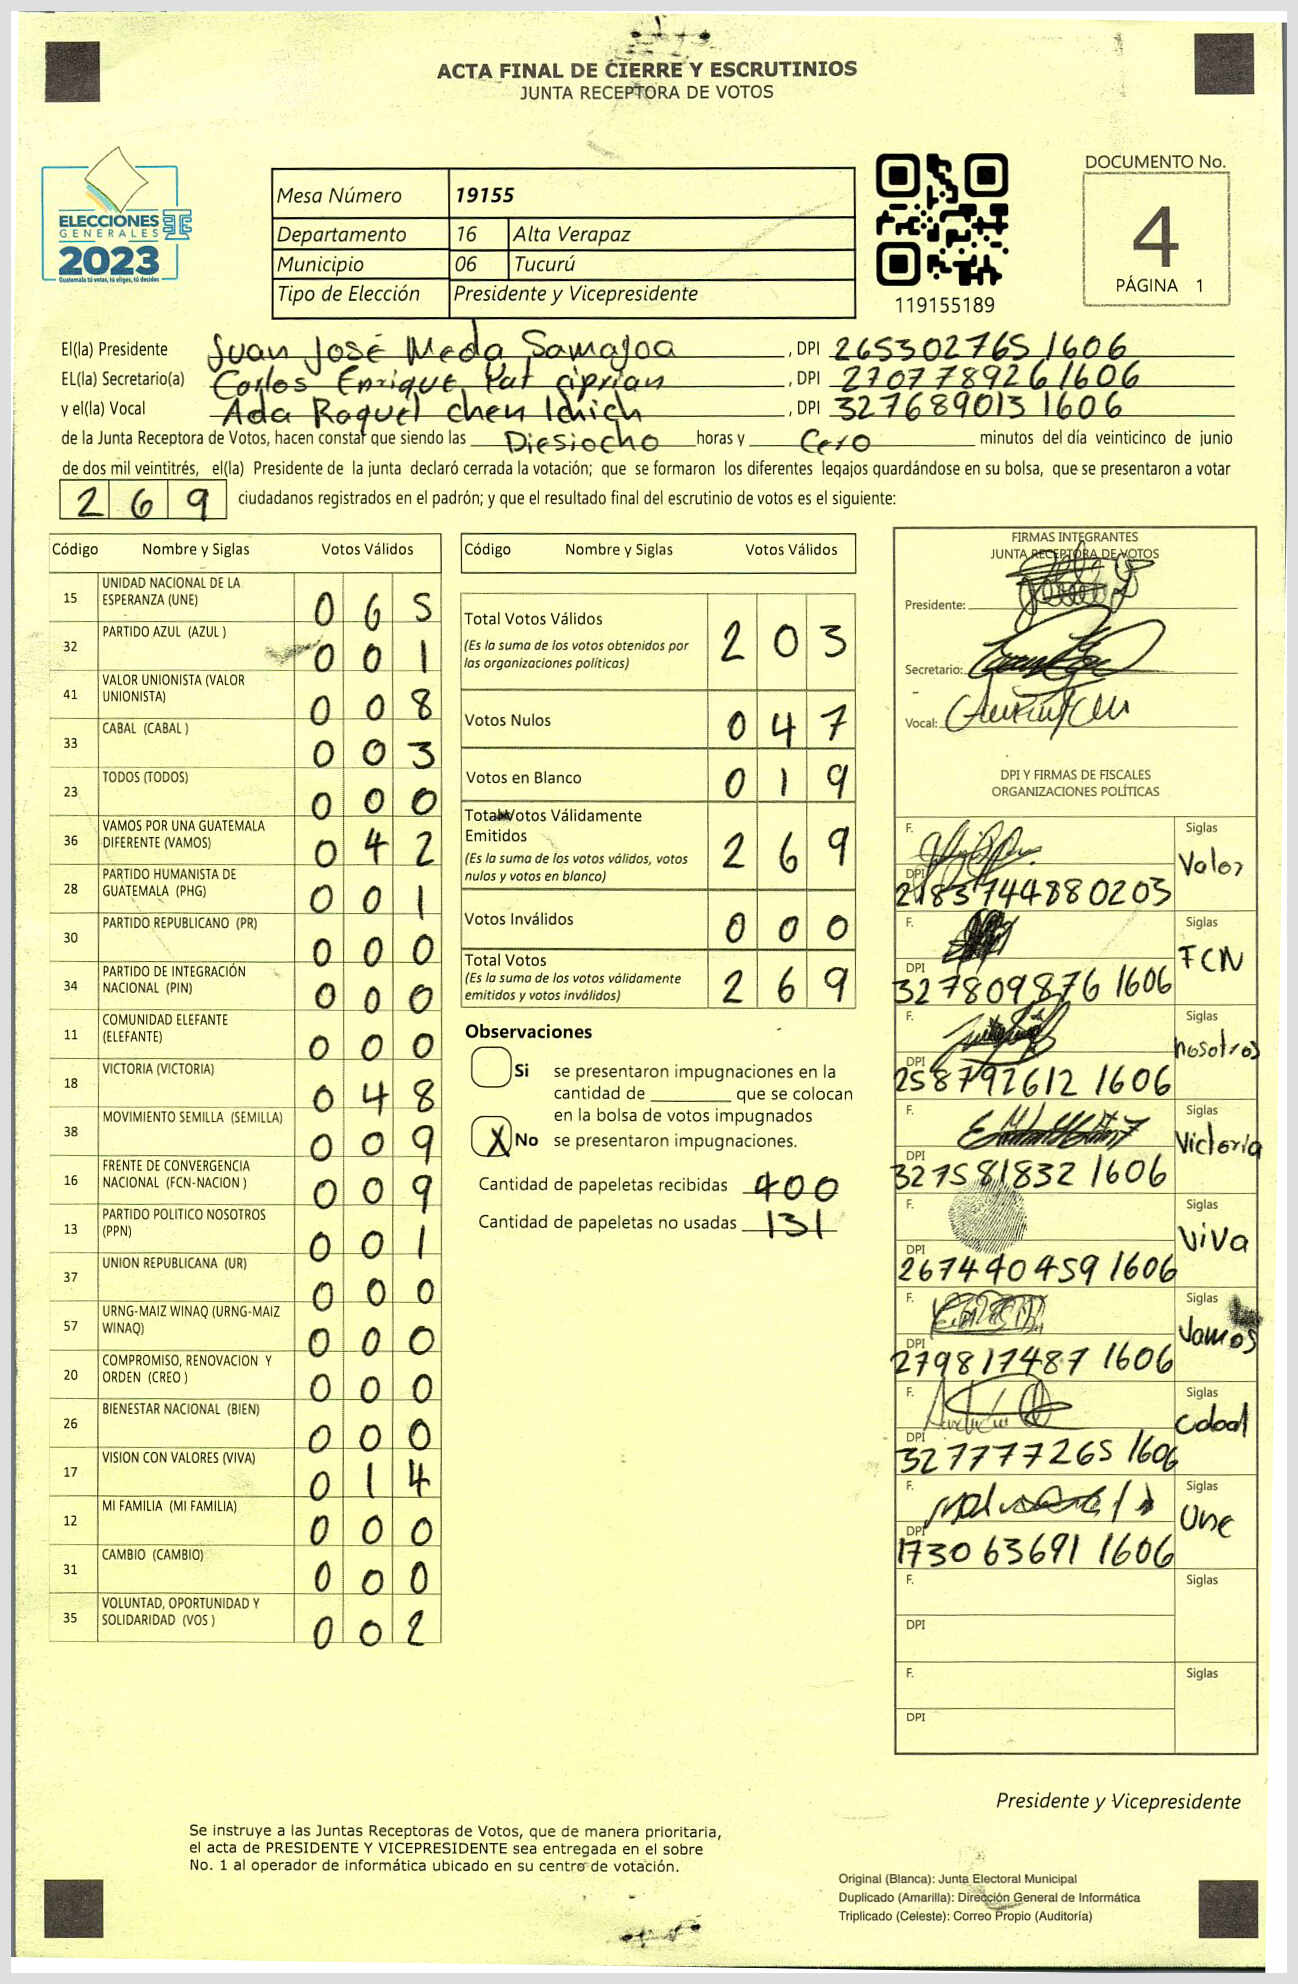 ACTA FINAL DE CIERRE Y ESCRUTINIOS
JUNTA RECEPTORA DE VOTOS
ELECCIONES
GENERALES
TSE
2023
Guatemala tú votas, tú eliges, tú decides
Mesa Número 19155
Departamento 16 Alta Verapaz
Municipio 06 Tucurú
Tipo de Elección Presidente y Vicepresidente
119155189
DOCUMENTO No.
4
PÁGINA 1
El(la) Presidente Juan José Meda Samajoa , DPI 265302765 1606
EL(la) Secretario(a) Carlos Enrique Pat ciprian , DPI 270778926 1606
y el(la) Vocal Ada Raquel chen Ichich , DPI 327689013 1606
de la Junta Receptora de Votos, hacen constar que siendo las Diesiocho horas y Cero minutos del día veinticinco de junio
de dos mil veintitrés, el(la) Presidente de la junta declaró cerrada la votación; que se formaron los diferentes legajos guardándose en su bolsa, que se presentaron a votar
269 ciudadanos registrados en el padrón; y que el resultado final del escrutinio de votos es el siguiente:
Código Nombre y Siglas Votos Válidos
15 UNIDAD NACIONAL DE LA ESPERANZA (UNE) 065
32 PARTIDO AZUL (AZUL ) 001
41 VALOR UNIONISTA (VALOR UNIONISTA) 008
33 CABAL (CABAL ) 003
23 TODOS (TODOS) 000
36 VAMOS POR UNA GUATEMALA DIFERENTE (VAMOS) 042
28 PARTIDO HUMANISTA DE GUATEMALA (PHG) 001
30 PARTIDO REPUBLICANO (PR) 000
34 PARTIDO DE INTEGRACIÓN NACIONAL (PIN) 000
11 COMUNIDAD ELEFANTE (ELEFANTE) 000
18 VICTORIA (VICTORIA) 048
38 MOVIMIENTO SEMILLA (SEMILLA) 009
16 FRENTE DE CONVERGENCIA NACIONAL (FCN-NACION ) 009
13 PARTIDO POLITICO NOSOTROS (PPN) 001
37 UNION REPUBLICANA (UR) 000
57 URNG-MAIZ WINAQ (URNG-MAIZ WINAQ) 000
20 COMPROMISO, RENOVACION Y ORDEN (CREO ) 000
26 BIENESTAR NACIONAL (BIEN) 000
17 VISION CON VALORES (VIVA) 014
12 MI FAMILIA (MI FAMILIA) 000
31 CAMBIO (CAMBIO) 000
35 VOLUNTAD, OPORTUNIDAD Y SOLIDARIDAD (VOS ) 002
Código Nombre y Siglas Votos Válidos
Total Votos Válidos 203
(Es la suma de los votos obtenidos por
las organizaciones políticas)
Votos Nulos 047
Votos en Blanco 019
Total Votos Válidamente
Emitidos 269
(Es la suma de los votos válidos, votos
nulos y votos en blanco)
Votos Inválidos 000
Total Votos 269
(Es la suma de los votos válidamente
emitidos y votos inválidos)
Observaciones
Si se presentaron impugnaciones en la
cantidad de ________ que se colocan
en la bolsa de votos impugnados
X No se presentaron impugnaciones.
Cantidad de papeletas recibidas 400
Cantidad de papeletas no usadas 131
FIRMAS INTEGRANTES
JUNTA RECEPTORA DE VOTOS
Presidente:
Secretario:
Vocal:
DPI Y FIRMAS DE FISCALES
ORGANIZACIONES POLÍTICAS
F. Siglas Valor
DPI 2183744880203
F. Siglas FCN
DPI 327809876 1606
F. Siglas nosotros
DPI 258792612 1606
F. Siglas Victoria
DPI 327581832 1606
F. Siglas ViVa
DPI 267440459 1606
F. Siglas Vamos
DPI 279817487 1606
F. Siglas Cabal
DPI 327777265 1606
F. Siglas Une
DPI 173063691 1606
F. Siglas
DPI
F. Siglas
DPI
Presidente y Vicepresidente
Se instruye a las Juntas Receptoras de Votos, que de manera prioritaria,
el acta de PRESIDENTE Y VICEPRESIDENTE sea entregada en el sobre
No. 1 al operador de informática ubicado en su centro de votación.
Original (Blanca): Junta Electoral Municipal
Duplicado (Amarilla): Dirección General de Informática
Triplicado (Celeste): Correo Propio (Auditoría)